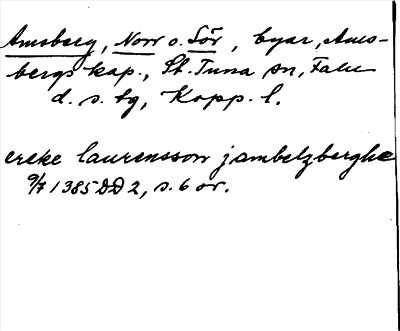 Amsberg, Norr o. Sör, byar, Ams-
bergs kap., St. Tuna sn, Falu
d. s. tg, Kopp. l.
ereke laurensson j ambelzberghe
9/7 1385 DD 2, s. 6 or.